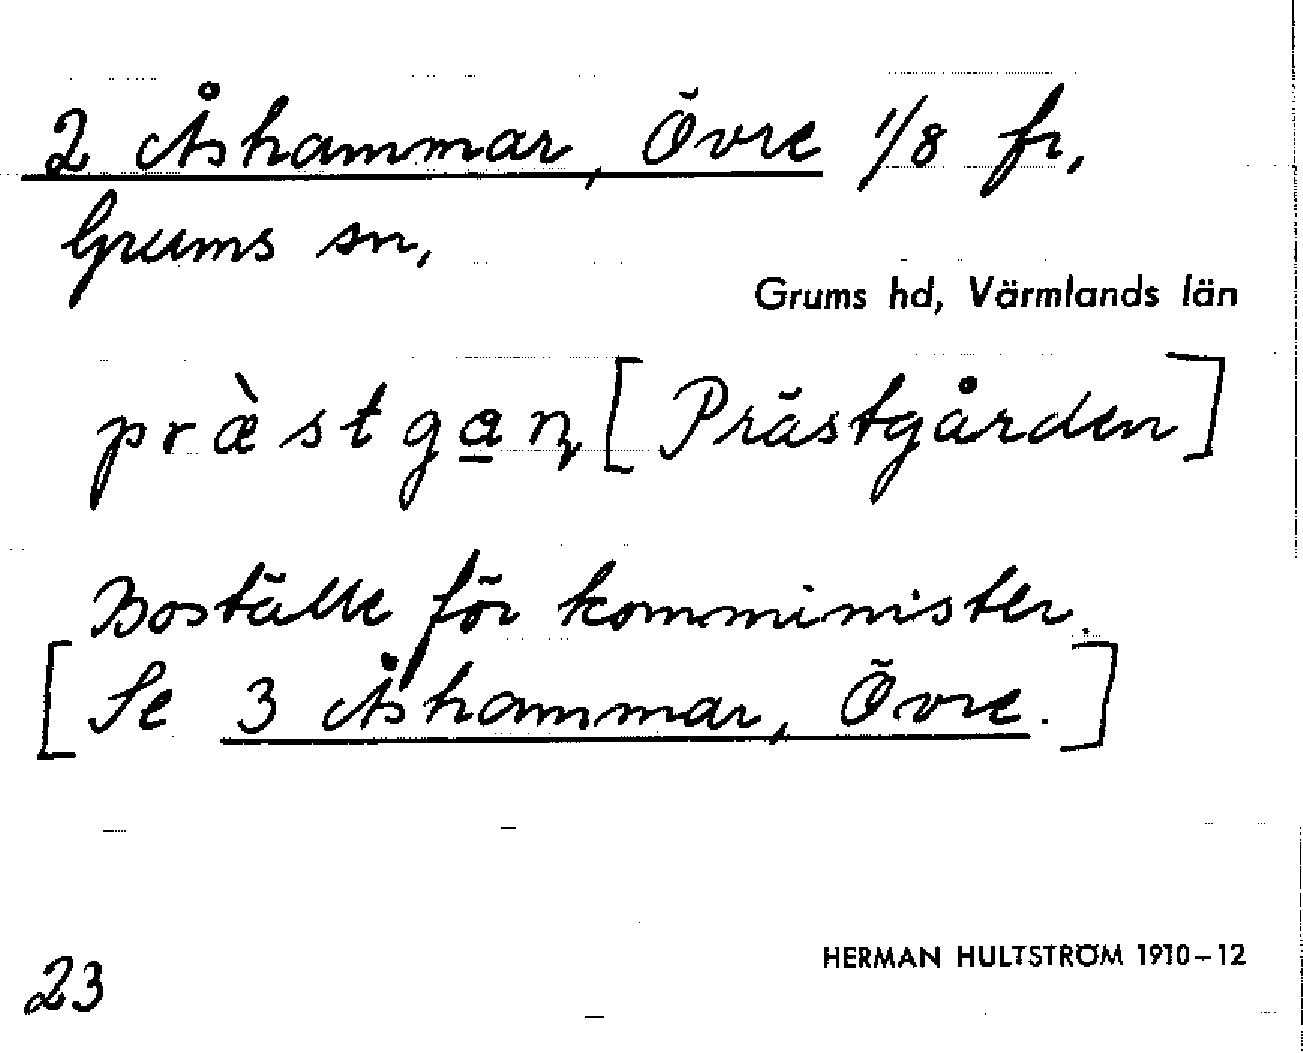 2 Åshammar, Övre 1/8 fr,
Grums sn,
Grums hd, Värmlands län
præ̀stga̲ɳ [Prästgården]
Boställe för komminister.
[Se 3 Åshammar, Övre.]
23
HERMAN HULTSTRÖM 1910-12